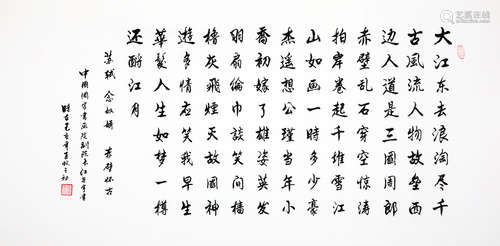 大江东去浪淘尽千
古风流人物故垒西
边人道是三國周郎
赤壁乱石穿空惊涛
拍岸卷起千堆雪江
山如画一時多少豪
杰遥想公瑾当年小
喬初嫁了雄姿英发
羽扇倫巾談笑间樯
橹灰飛煙灭故國神
遊多情应笑我早生
華髮人生如梦一樽
还酹江月
苏轼 念奴娇 赤壁怀古
中國國学書画院副院长江